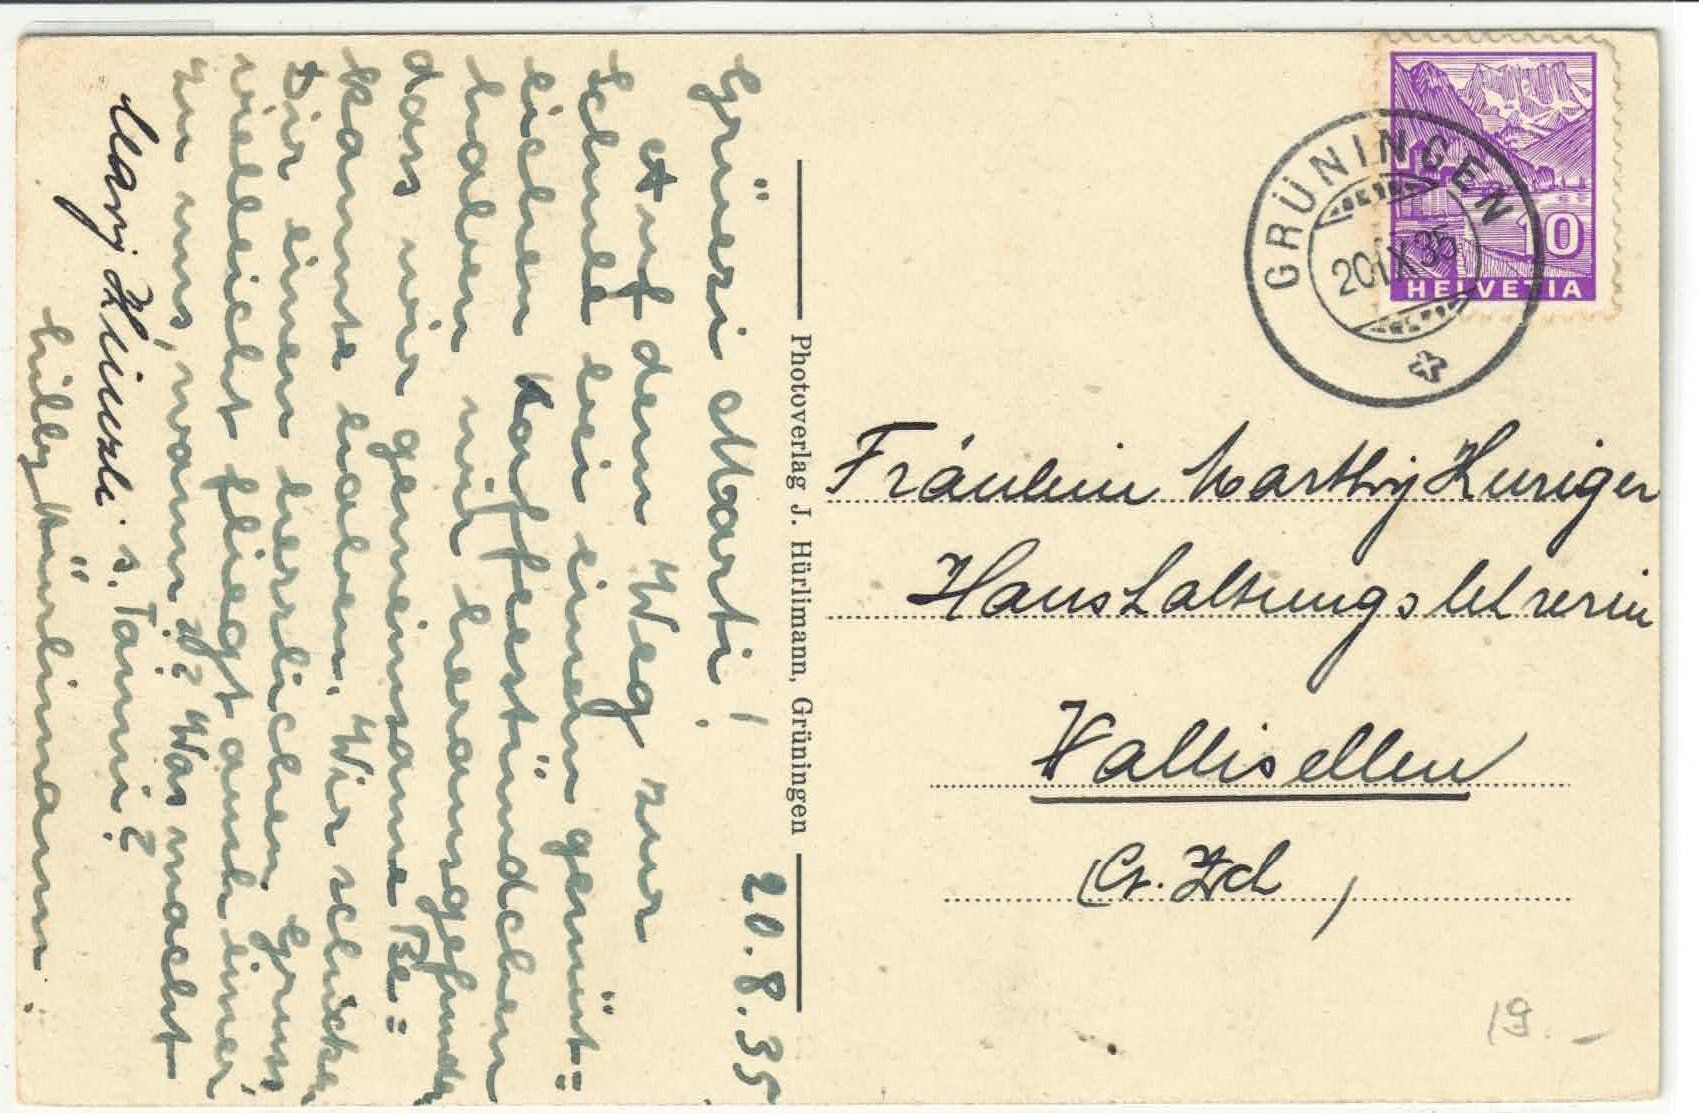 20.8.35
Grüezi Marti!
Auf dem Weg zur
Schule bei einem gemüt=
lichen Kaffeestündchen
haben wir herausgefunden
dass wir gemeinsame Be=
kannte haben. Wir schicken
Dir einen herzlichen Gruss
vielleicht fliegt auch einer
zu uns, wann? Was macht
s. Tanni?
Hürlimann.
Photoverlag J. Hürlimann, Grüningen
GRÜNINGEN
20.IX.35
10
HELVETIA
Fräulein Marthy Huriger
Haushaltungslehrerin
Wallisellen
(Ct. Zch)
19.-